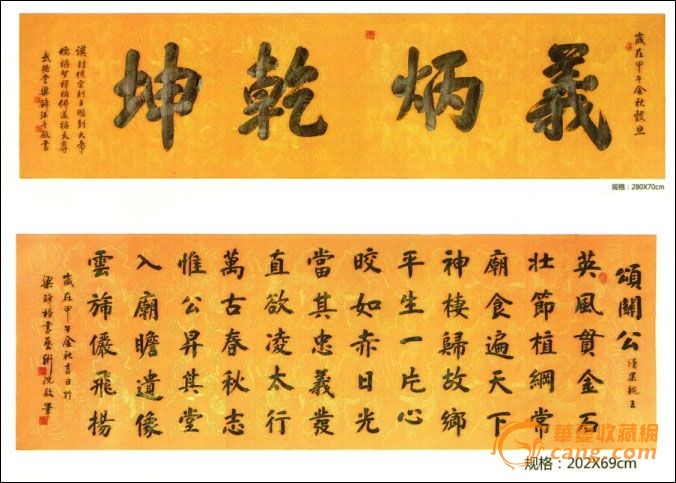 歲在甲午金秋穀旦
義炳乾坤
漢封侯宋封王明封大帝
儒稱聖釋稱佛道稱天尊
武德堂梁敬書
规格：280X70cm
頌關公
清果親王
英風貫金石
壯節植綱常
廟食遍天下
神棲歸故鄉
平生一片心
皎如赤日光
當其忠義發
直欲凌太行
萬古春秋志
惟公昇其堂
入廟瞻遺像
雲旆儼飛揚
歲在甲午金秋吉日於
梁書藝術院敬
華夏收藏網
cang.com
规格：202X69cm